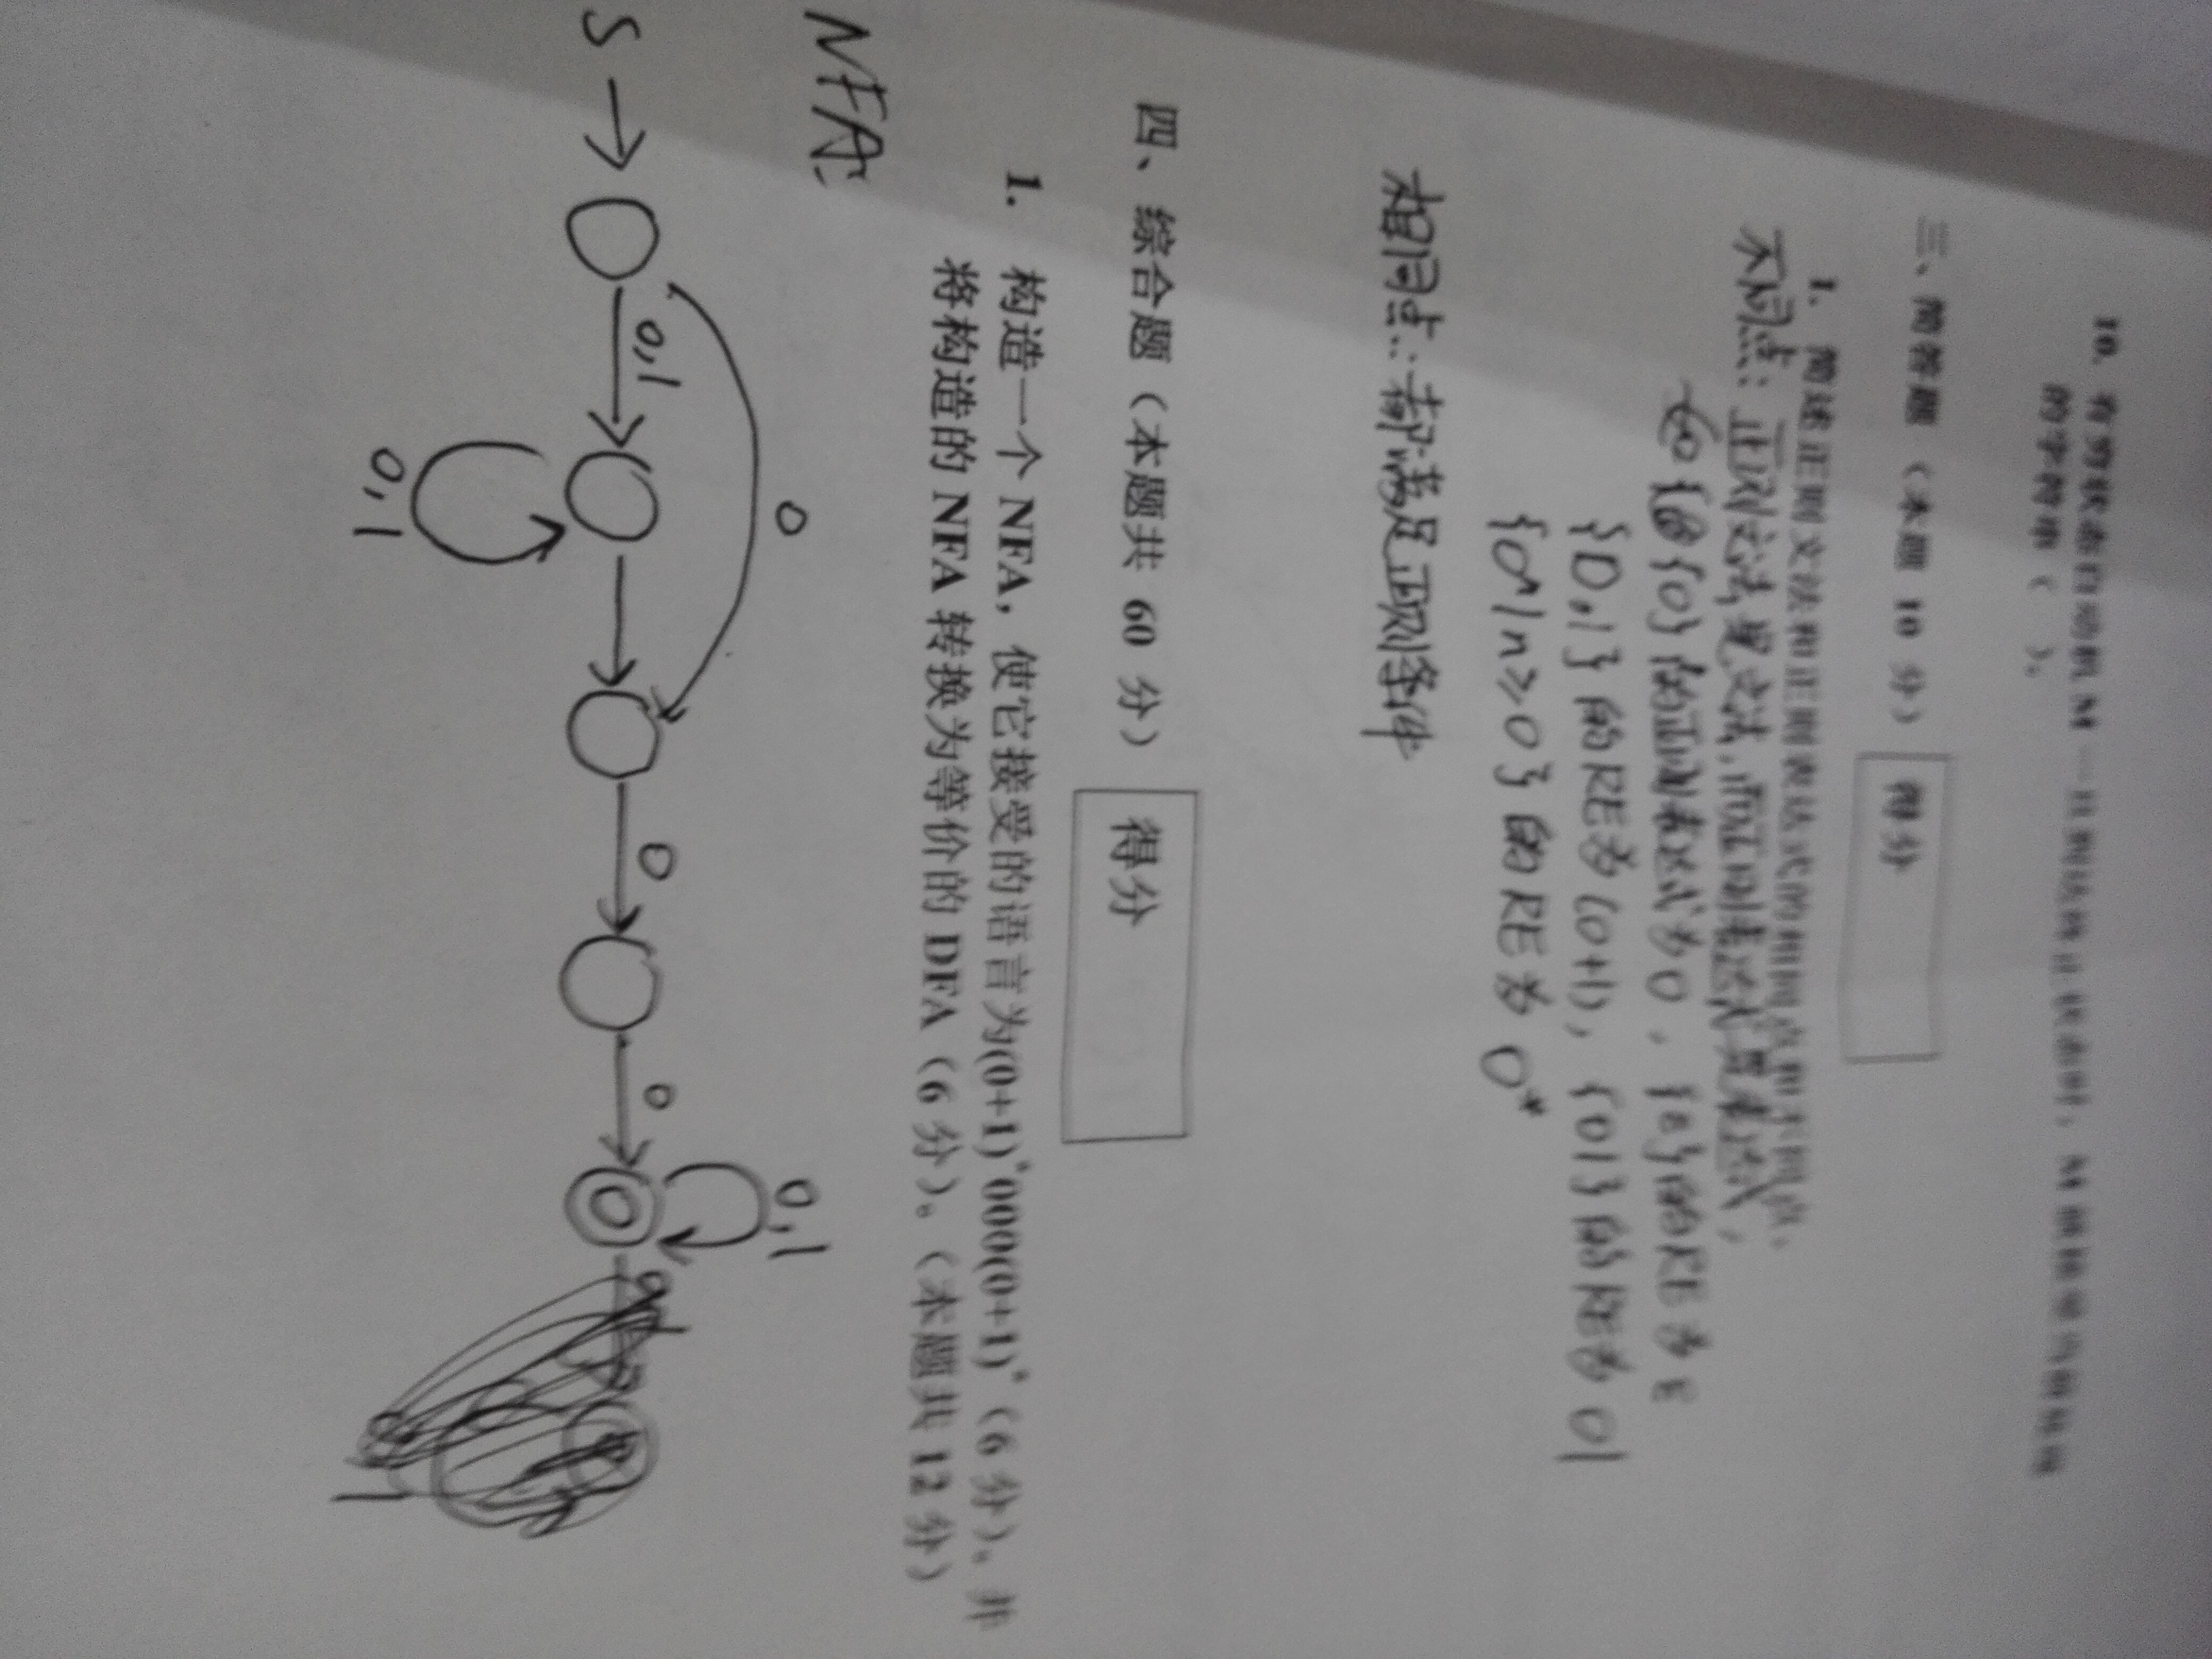 10. 有穷状态自动机 M 一旦到达终止状态时，M 就接受当前处理
的字符串（ ）。
三、简答题 （本题 10 分） 得分
1. 简述正则文法和正则表达式的相同点和不同点。
不同点：正则文法是文法，而正则表达式是表达式，
{0}的正则表达式为0，{ε}的RE为ε
{0,1}的RE为(0+1)，{01}的RE为01
{0^n|n≥0}的RE为0*
相同点：都满足正则条件
四、综合题（本题共 60 分） 得分
1. 构造一个 NFA，使它接受的语言为(0+1)*000(0+1)*（6 分）。并
将构造的 NFA 转换为等价的 DFA（6 分）。（本题共 12 分）
NFA:
0
0,1
S
0,1
0
0
0,1